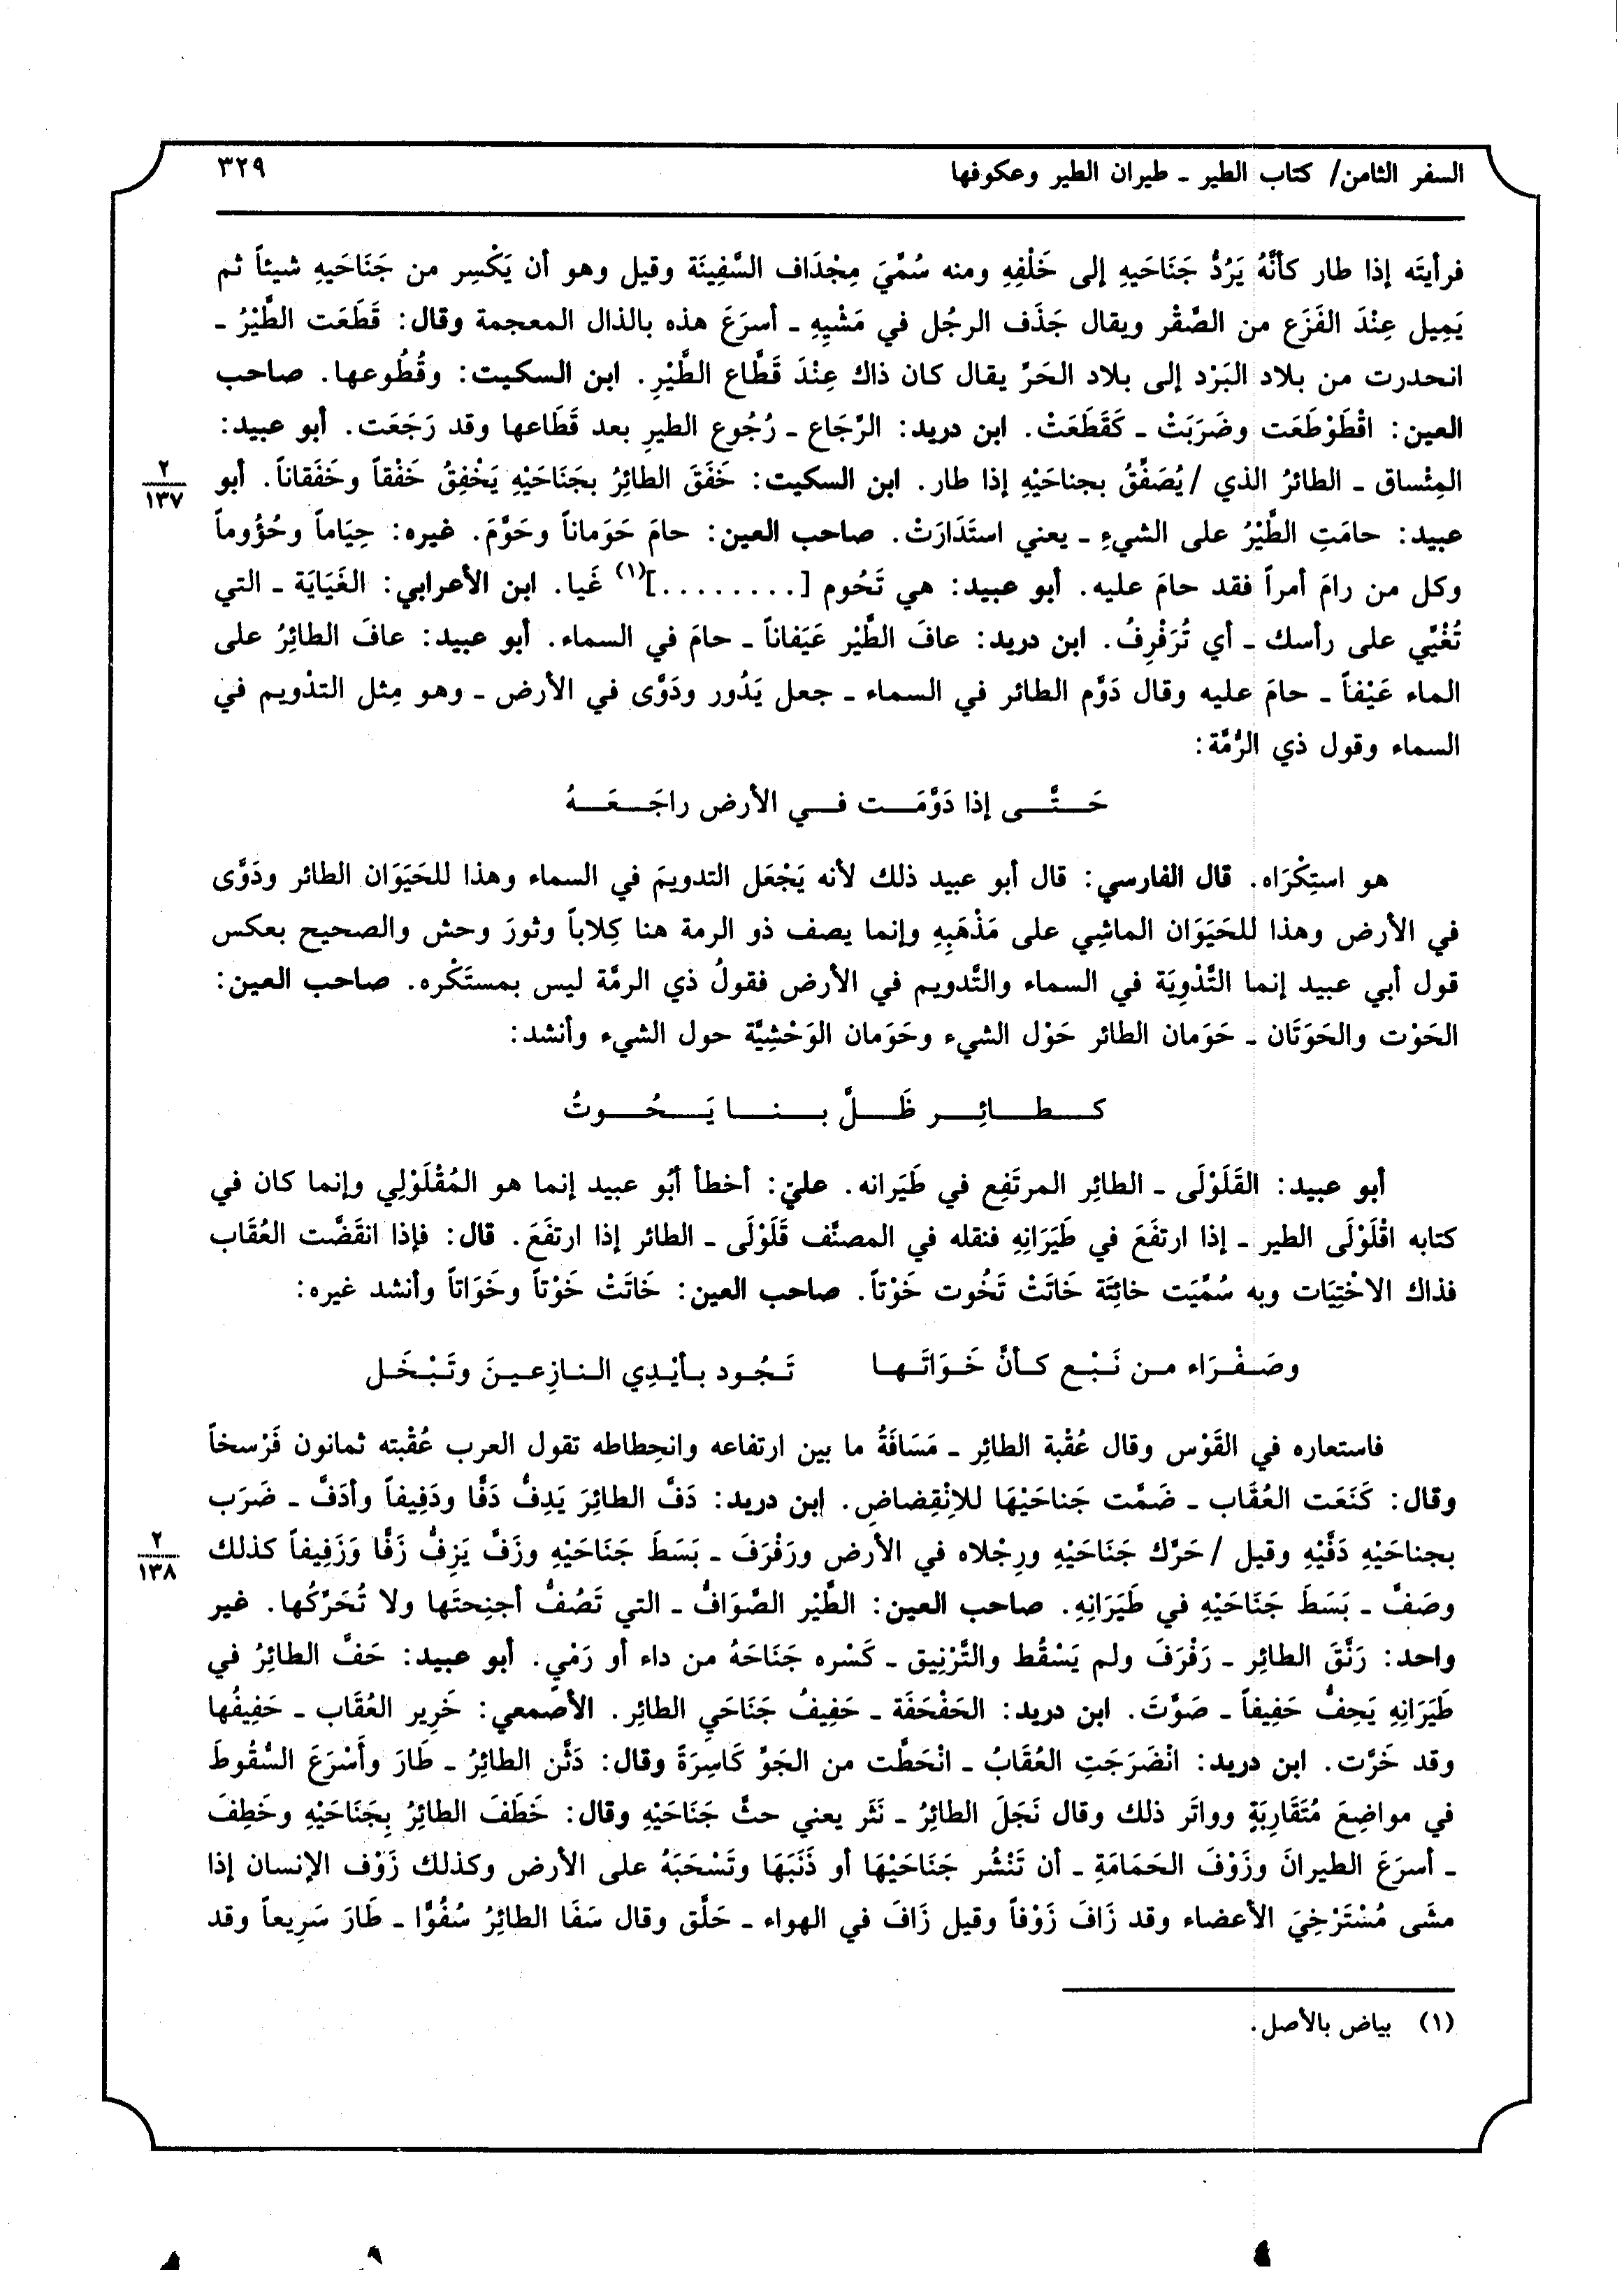 السفر الثامن/ كتاب الطير ـ طيران الطير وعكوفها
٣٢٩
فرأيتَه إذا طار كأنَّهُ يَرُدُّ جَنَاحَيهِ إلى خَلْفِهِ ومنه سُمِّيَ مِجْدَاف السَّفِينَة وقيل وهو أن يَكْسِر من جَنَاحَيهِ شيئاً ثم
يَمِيل عِنْدَ الفَزَع من الصَّقْر ويقال جَذَف الرجُل في مَشْيِهِ ـ أسرَعَ هذه بالذال المعجمة وقال: قَطَعَت الطَّيْرُ ـ
انحدرت من بلاد البَرْد إلى بلاد الحَرِّ يقال كان ذاك عِنْدَ قَطَّاع الطَّيْرِ. ابن السكيت: وقُطُوعها. صاحب
العين: اقْطَوْطَعَت وضَرَبَتْ ـ كَقَطَعَتْ. ابن دريد: الرِّجَاع ـ رُجُوع الطيرِ بعد قَطَاعها وقد رَجَعَت. أبو عبيد:
المِنْساق ـ الطائرُ الذي / يُصَفِّقُ بجناحَيْهِ إذا طار. ابن السكيت: خَفَقَ الطائِرُ بجَنَاحَيْهِ يَخْفِقُ خَفْقاً وخَفَقاناً. أبو
٢
١٣٧
عبيد: حامَتِ الطَّيْرُ على الشيءِ ـ يعني استَدَارَتْ. صاحب العين: حامَ حَوَماناً وحَوَّمَ. غيره: حِيَاماً وحُؤُوماً
وكل من رامَ أمراً فقد حامَ عليه. أبو عبيد: هي تَحُوم [.........](١) غَيا. ابن الأعرابي: الغَيَايَة ـ التي
تُغْيِّي على رأسك ـ أي تُرَفْرِفُ. ابن دريد: عافَ الطَّيْر عَيَفاناً ـ حامَ في السماء. أبو عبيد: عافَ الطائِرُ على
الماء عَيْفاً ـ حامَ عليه وقال دَوَّم الطائر في السماء ـ جعل يَدُور ودَوَّى في الأرض ـ وهو مِثل التدْويم في
السماء وقول ذي الرُّمَّة:
حَـتَّـى إذا دَوَّمَـت فـي الأرض راجَـعَـهُ
هو استِكْرَاه. قال الفارسي: قال أبو عبيد ذلك لأنه يَجْعَل التدويمَ في السماء وهذا للحَيَوَان الطائر ودَوَّى
في الأرض وهذا للحَيَوَان الماشِي على مَذْهَبِهِ وإنما يصف ذو الرمة هنا كِلاباً وثورَ وحش والصحيح بعكس
قول أبي عبيد إنما التَّدْوِيَة في السماء والتَّدويم في الأرض فقولُ ذي الرمَّة ليس بمستَكْره. صاحب العين:
الحَوْت والحَوَتَان ـ حَوَمان الطائر حَوْل الشيء وحَوَمان الوَحْشِيَّة حول الشيء وأنشد:
كـطـائِـر ظَـلَّ بـنـا يَـحُـوتُ
أبو عبيد: القَلَوْلَى ـ الطائِر المرتَفِع في طَيَرانه. عليّ: أخطأ أبُو عبيد إنما هو المُقْلَوْلِي وإنما كان في
كتابه اقْلَوْلَى الطير ـ إذا ارتفَعَ في طَيَرَانِهِ فنقله في المصنَّف قَلَوْلَى ـ الطائر إذا ارتفَعَ. قال: فإذا انقَضَّت العُقَاب
فذاك الاخْتِيَات وبه سُمِّيَت خائِتَة خَاتَتْ تَخُوت خَوْتاً. صاحب العين: خَاتَتْ خَوْتاً وخَوَاتاً وأنشد غيره:
وصَـفْـرَاء مـن نَـبْـع كـأنَّ خَـوَاتَـهـا تَـجُـود بـأيْـدِي الـنـازِعـيـنَ وتَـبْـخَـل
فاستعاره في القَوْس وقال عُقْبة الطائِر ـ مَسَافَةُ ما بين ارتفاعه وانحِطاطه تقول العرب عُقْبته ثمانون فَرْسخاً
وقال: كَنَعَت العُقَاب ـ ضَمَّت جَناحَيْهَا للاِنْقِضاضِ. ابن دريد: دَفَّ الطائِرَ يَدِفُّ دَفًّا ودَفِيفاً وأدَفَّ ـ ضَرَب
بجناحَيْهِ دَفَّيْهِ وقيل / حَرَّك جَنَاحَيْهِ ورِجْلاه في الأرض ورَفْرَفَ ـ بَسَطَ جَنَاحَيْهِ وزَفَّ يَزِفُّ زَفًّا وَزَفِيفاً كذلك
٢
١٣٨
وصَفَّ ـ بَسَطَ جَنَاحَيْهِ في طَيَرَانِهِ. صاحب العين: الطَّيْر الصَّوَافُّ ـ التي تَصُفُّ أجنِحتَها ولا تُحَرِّكُها. غير
واحد: رَنَّقَ الطائِر ـ رَفْرَفَ ولم يَسْقُط والتَّرْنِيق ـ كَسْره جَنَاحَهُ من داء أو رَمْيٍ. أبو عبيد: حَفَّ الطائِرُ في
طَيَرَانِهِ يَحِفُّ حَفِيفاً ـ صَوَّتَ. ابن دريد: الحَفْحَفَة ـ حَفِيفُ جَنَاحَيِ الطائِر. الأصمعي: خَرِير العُقَاب ـ حَفِيفُها
وقد خَرَّت. ابن دريد: انْضَرَجَتِ العُقَابُ ـ انْحَطَّت من الجَوِّ كَاسِرَةً وقال: دَثَّن الطائِرُ ـ طَارَ وأَسْرَعَ السُّقُوطَ
في مواضِعَ مُتَقَارِبَةٍ وواتَر ذلك وقال نَجَلَ الطائِرُ ـ نَثَر يعني حثَّ جَنَاحَيْهِ وقال: خَطَفَ الطائِرُ بِجَنَاحَيْهِ وخَطِفَ
ـ أسرَعَ الطيرانَ وزَوْفَ الحَمَامَةِ ـ أن تَنْشُر جَنَاحَيْهَا أو ذَنَبَهَا وتَسْحَبَهُ على الأرض وكذلك زَوْف الإنسان إذا
مشَى مُسْتَرْخِيَ الأعضاء وقد زَافَ زَوْفاً وقيل زَافَ في الهواء ـ حَلَّق وقال سَفَا الطائِرُ سُفُوًّا ـ طَارَ سَرِيعاً وقد
(١) بياض بالأصل.